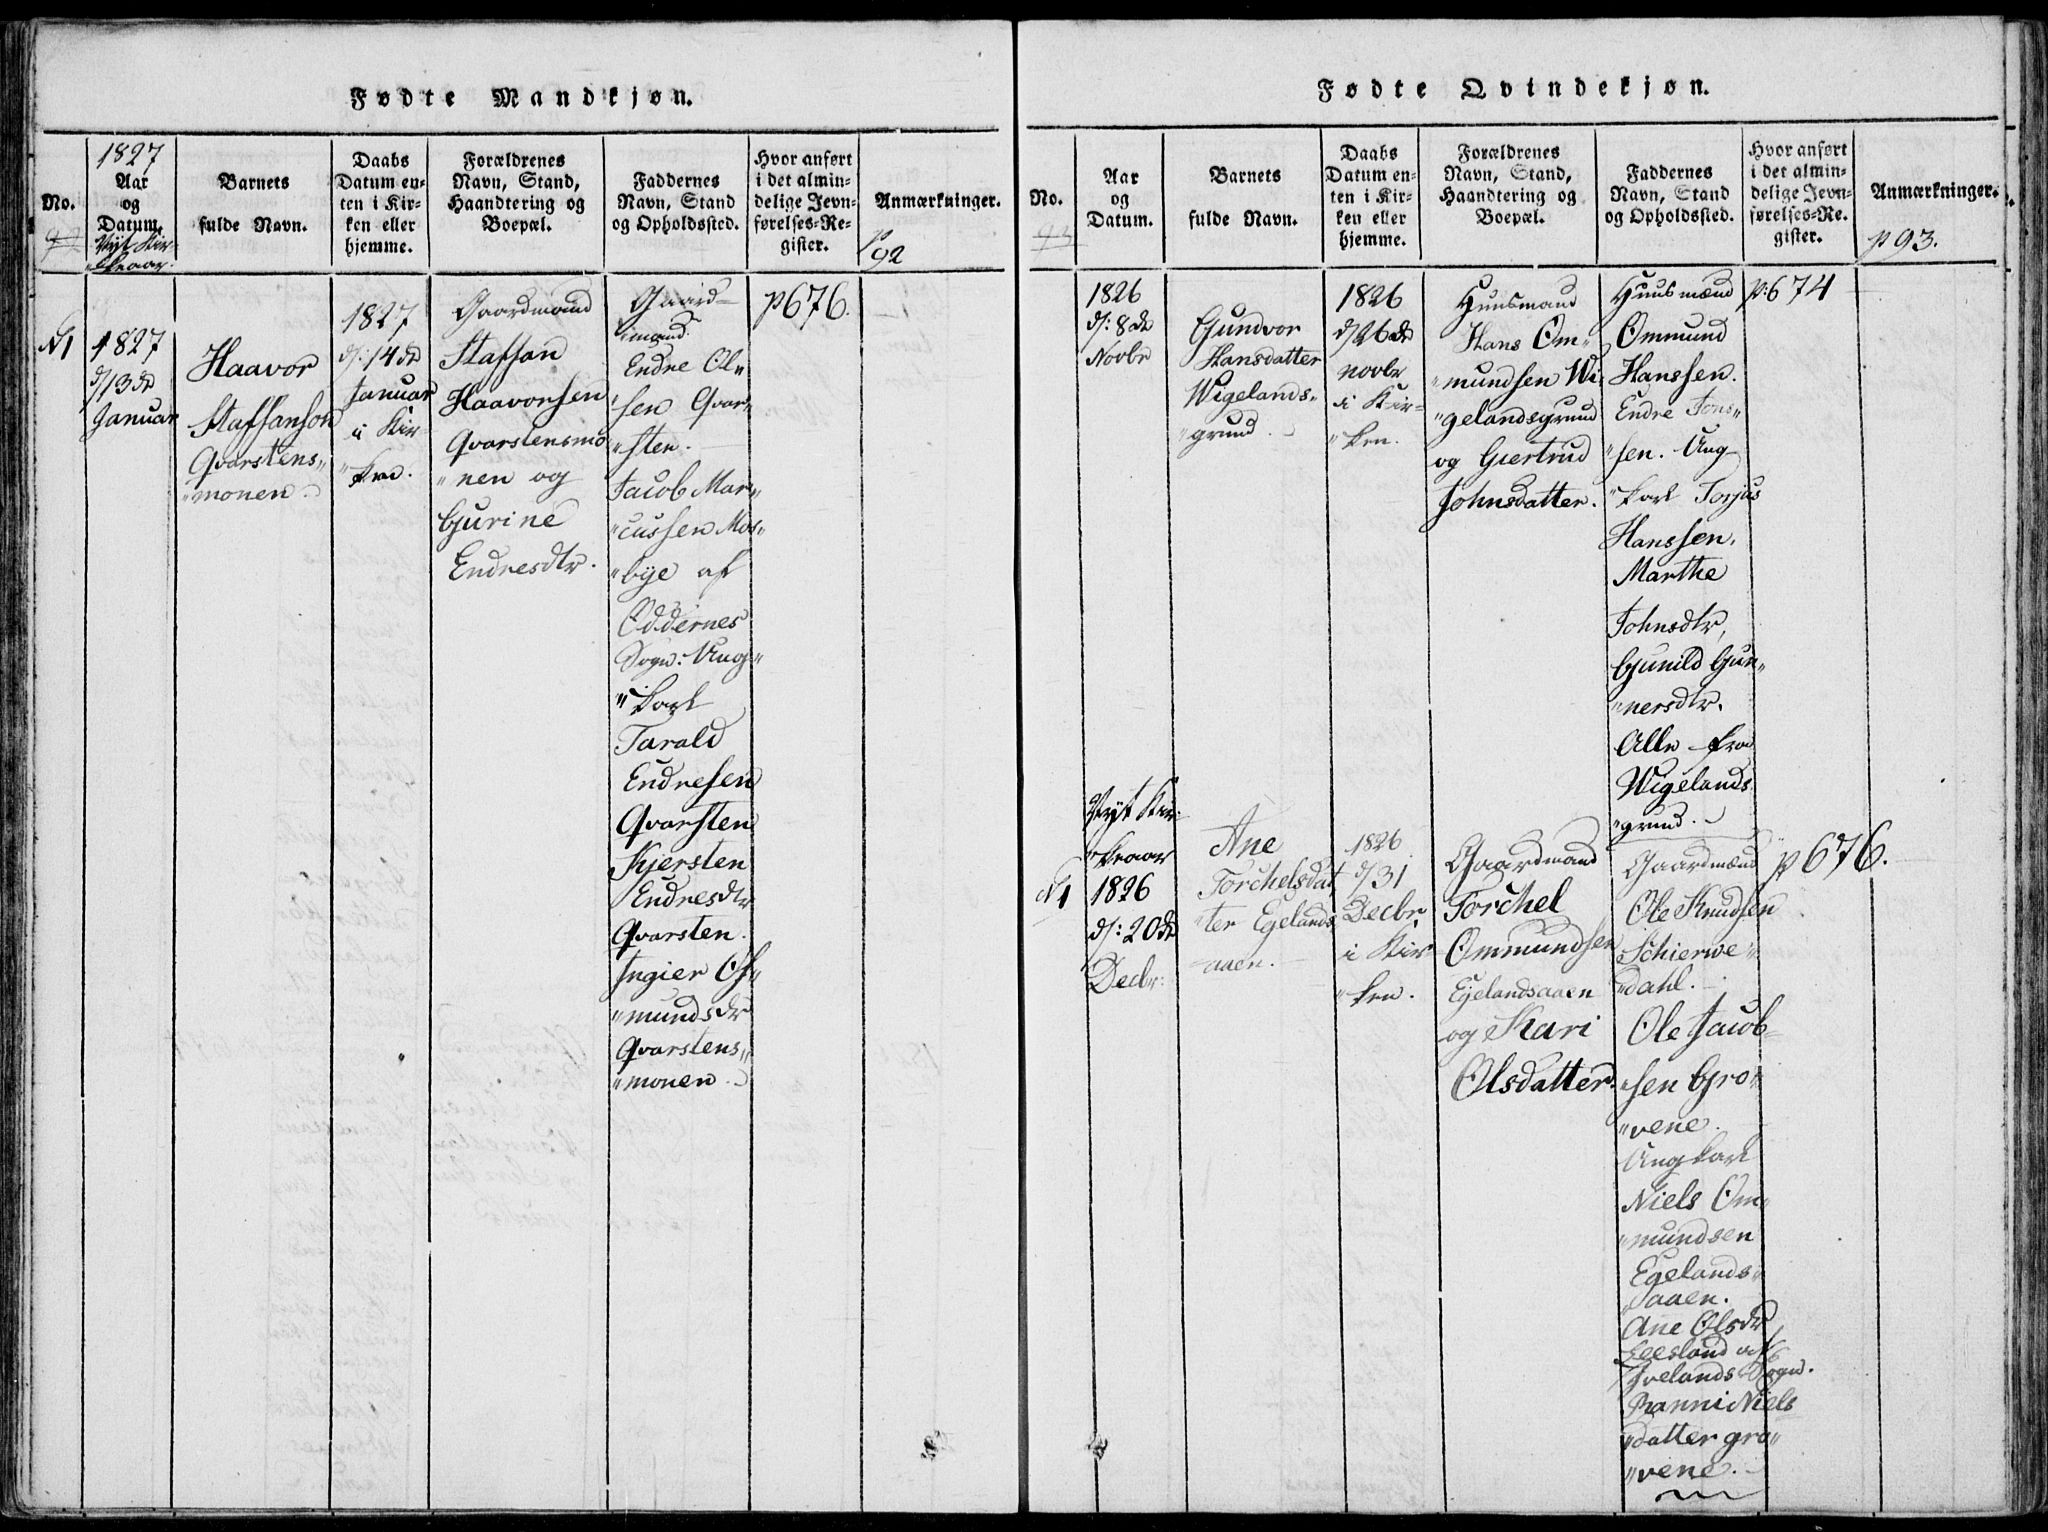 Fødte Mandkjøn.
No.
1827
Aar
og
Datum.
Nyt Kir-
"keaar.
Barnets
fulde Navn.
Daabs
Datum en-
ten i Kir-
ken eller
hjemme.
Forældrenes
Navn, Stand,
Haandtering og
Boepæl.
Faddernes
Navn, Stand
og Opholdssted.
Hvor anført
i det almin-
delige Jevn-
førelses-Re-
gister.
Anmærkninger.
p
92
N1
1827
d/13de
Januar
Haavor
Staffanson
Qvarstens"
"monen.
1827
d/:14de
Januar
i Kir-
"ken.
Gaardmand
Staffan
Haavorsen
Qvarstensmo
"nen og
Gurine
Endresdtr.
Gaard-
mænd
Endre Ol"
"sen Qvar"
"sten.
Jacob Mar"
"cussen Mos"
"bye af
Oddernes
Sogn. Ung"
"karl
Tarald
Endresen
Qvarsten
Kjersten
Endresdtr
Qvarsten.
Ingier Os"
"mundsdr
Qvarstens"
"monen.
p676.
Fødte Qvindekjøn.
No.
93
Aar
og
Datum.
Barnets
fulde Navn.
Daabs
Datum en-
ten i Kir-
ken eller
hjemme.
Forældrenes
Navn, Stand,
Haandtering og
Boepæl.
Faddernes
Navn, Stand
og Opholdssted.
Hvor anført
i det almin-
delige Jevn-
førelses-Re-
gister.
Anmærkninger.
p93.
1826
d/:8de
Novbr
Gundvor
Hansdatter
Wigelands"
"grund.
1826
d/26de
novbr
i Kir-
"ken.
Huusmand
Hans Om"
"mundsen Wi"
"gelandsgrund
og Giertrud
Johnsdatter.
Huusmænd
Ommund
Hanssen.
Endre Jons"
"sen. Ung
"karl Torjus
Hanssen,
Marthe
Johnsdtr,
Gunild Gun"
"nersdtr.
Alle fra
Wigelands
"grund.
p:674
Nyt Kir-
"keaar
N1
1826
d/:20de
Decbr:
Ane
Torchelsdat
"ter Egelands
-aaen.
1826
d/31
Decbr
i Kir
"ken.
Gaardmand
Torchel
Ommundsen
Egelandsaaen
og Kari
Olsdatter.
Gaardmænd
Ole Knudsen
Schierve"
"dahl.
Ole Jacob-
"sen Gro"
"vene.
Ungkarl
Niels Om"
"mundsen
Egelands"
"aaen.
Ane Olsdr
Eeesland af
Ivelands Sogn.
Ranni Niels
"datter gro"
"vene.
p676.